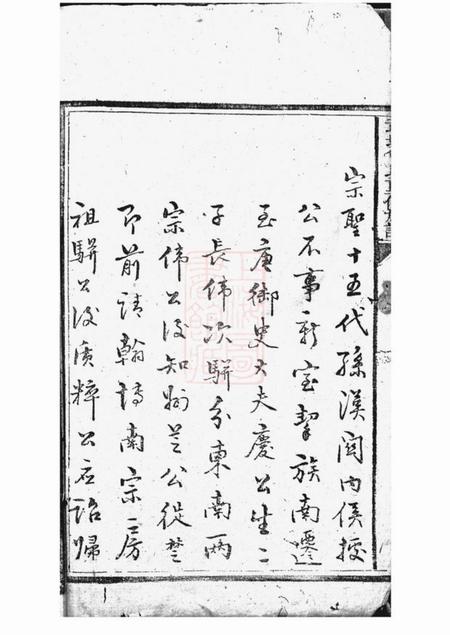 宗聖十五代孫漢関内侯據
公不事新室挈族南遷
至唐御史大夫慶公生二
子長偉次駢分東南兩
宗偉公後知州芝公從楚
即前請翰博南宗二房
祖駢公後質粹公應詔歸